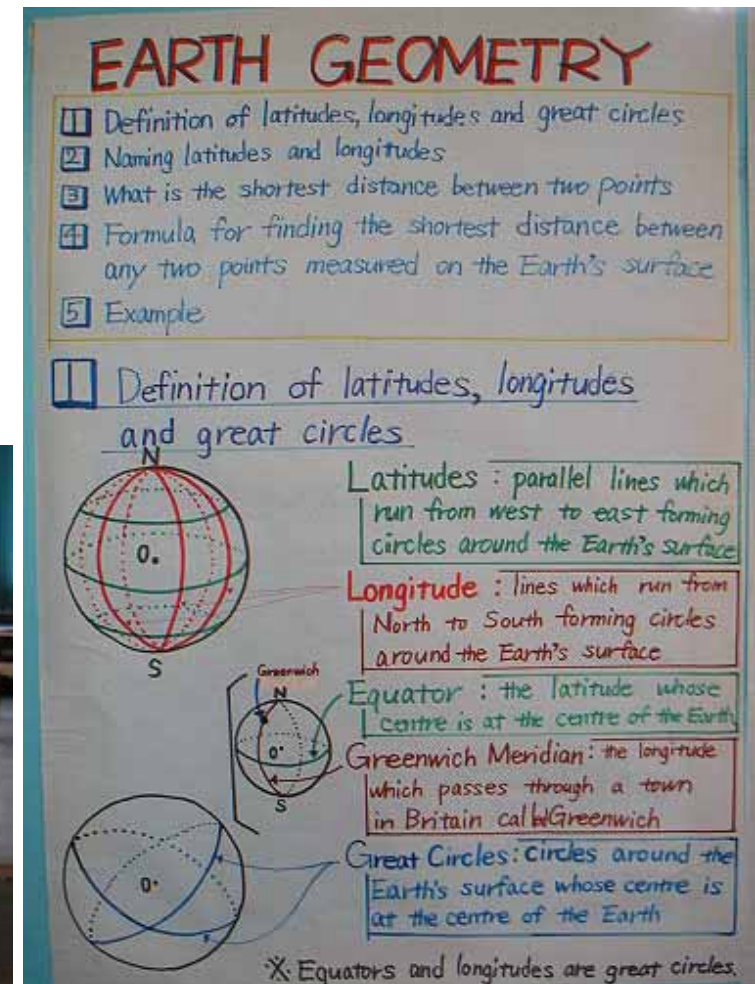 EARTH GEOMETRY
1 Definition of latitudes, longitudes and great circles
2 Naming latitudes and longitudes
3 What is the shortest distance between two points
4 Formula for finding the shortest distance between
any two points measured on the Earth's surface
5 Example
1 Definition of latitudes, longitudes
and great circles
N
O
S
Latitudes : parallel lines which
run from west to east forming
circles around the Earth's surface
Longitude : lines which run from
North to South forming circles
around the Earth's surface
Greenwich
N
O
S
Equator : the latitude whose
centre is at the centre of the Earth
Greenwich Meridian : the longitude
which passes through a town
in Britain called Greenwich
O
Great Circles : Circles around the
Earth's surface whose centre is
at the centre of the Earth
※ Equators and longitudes are great circles.